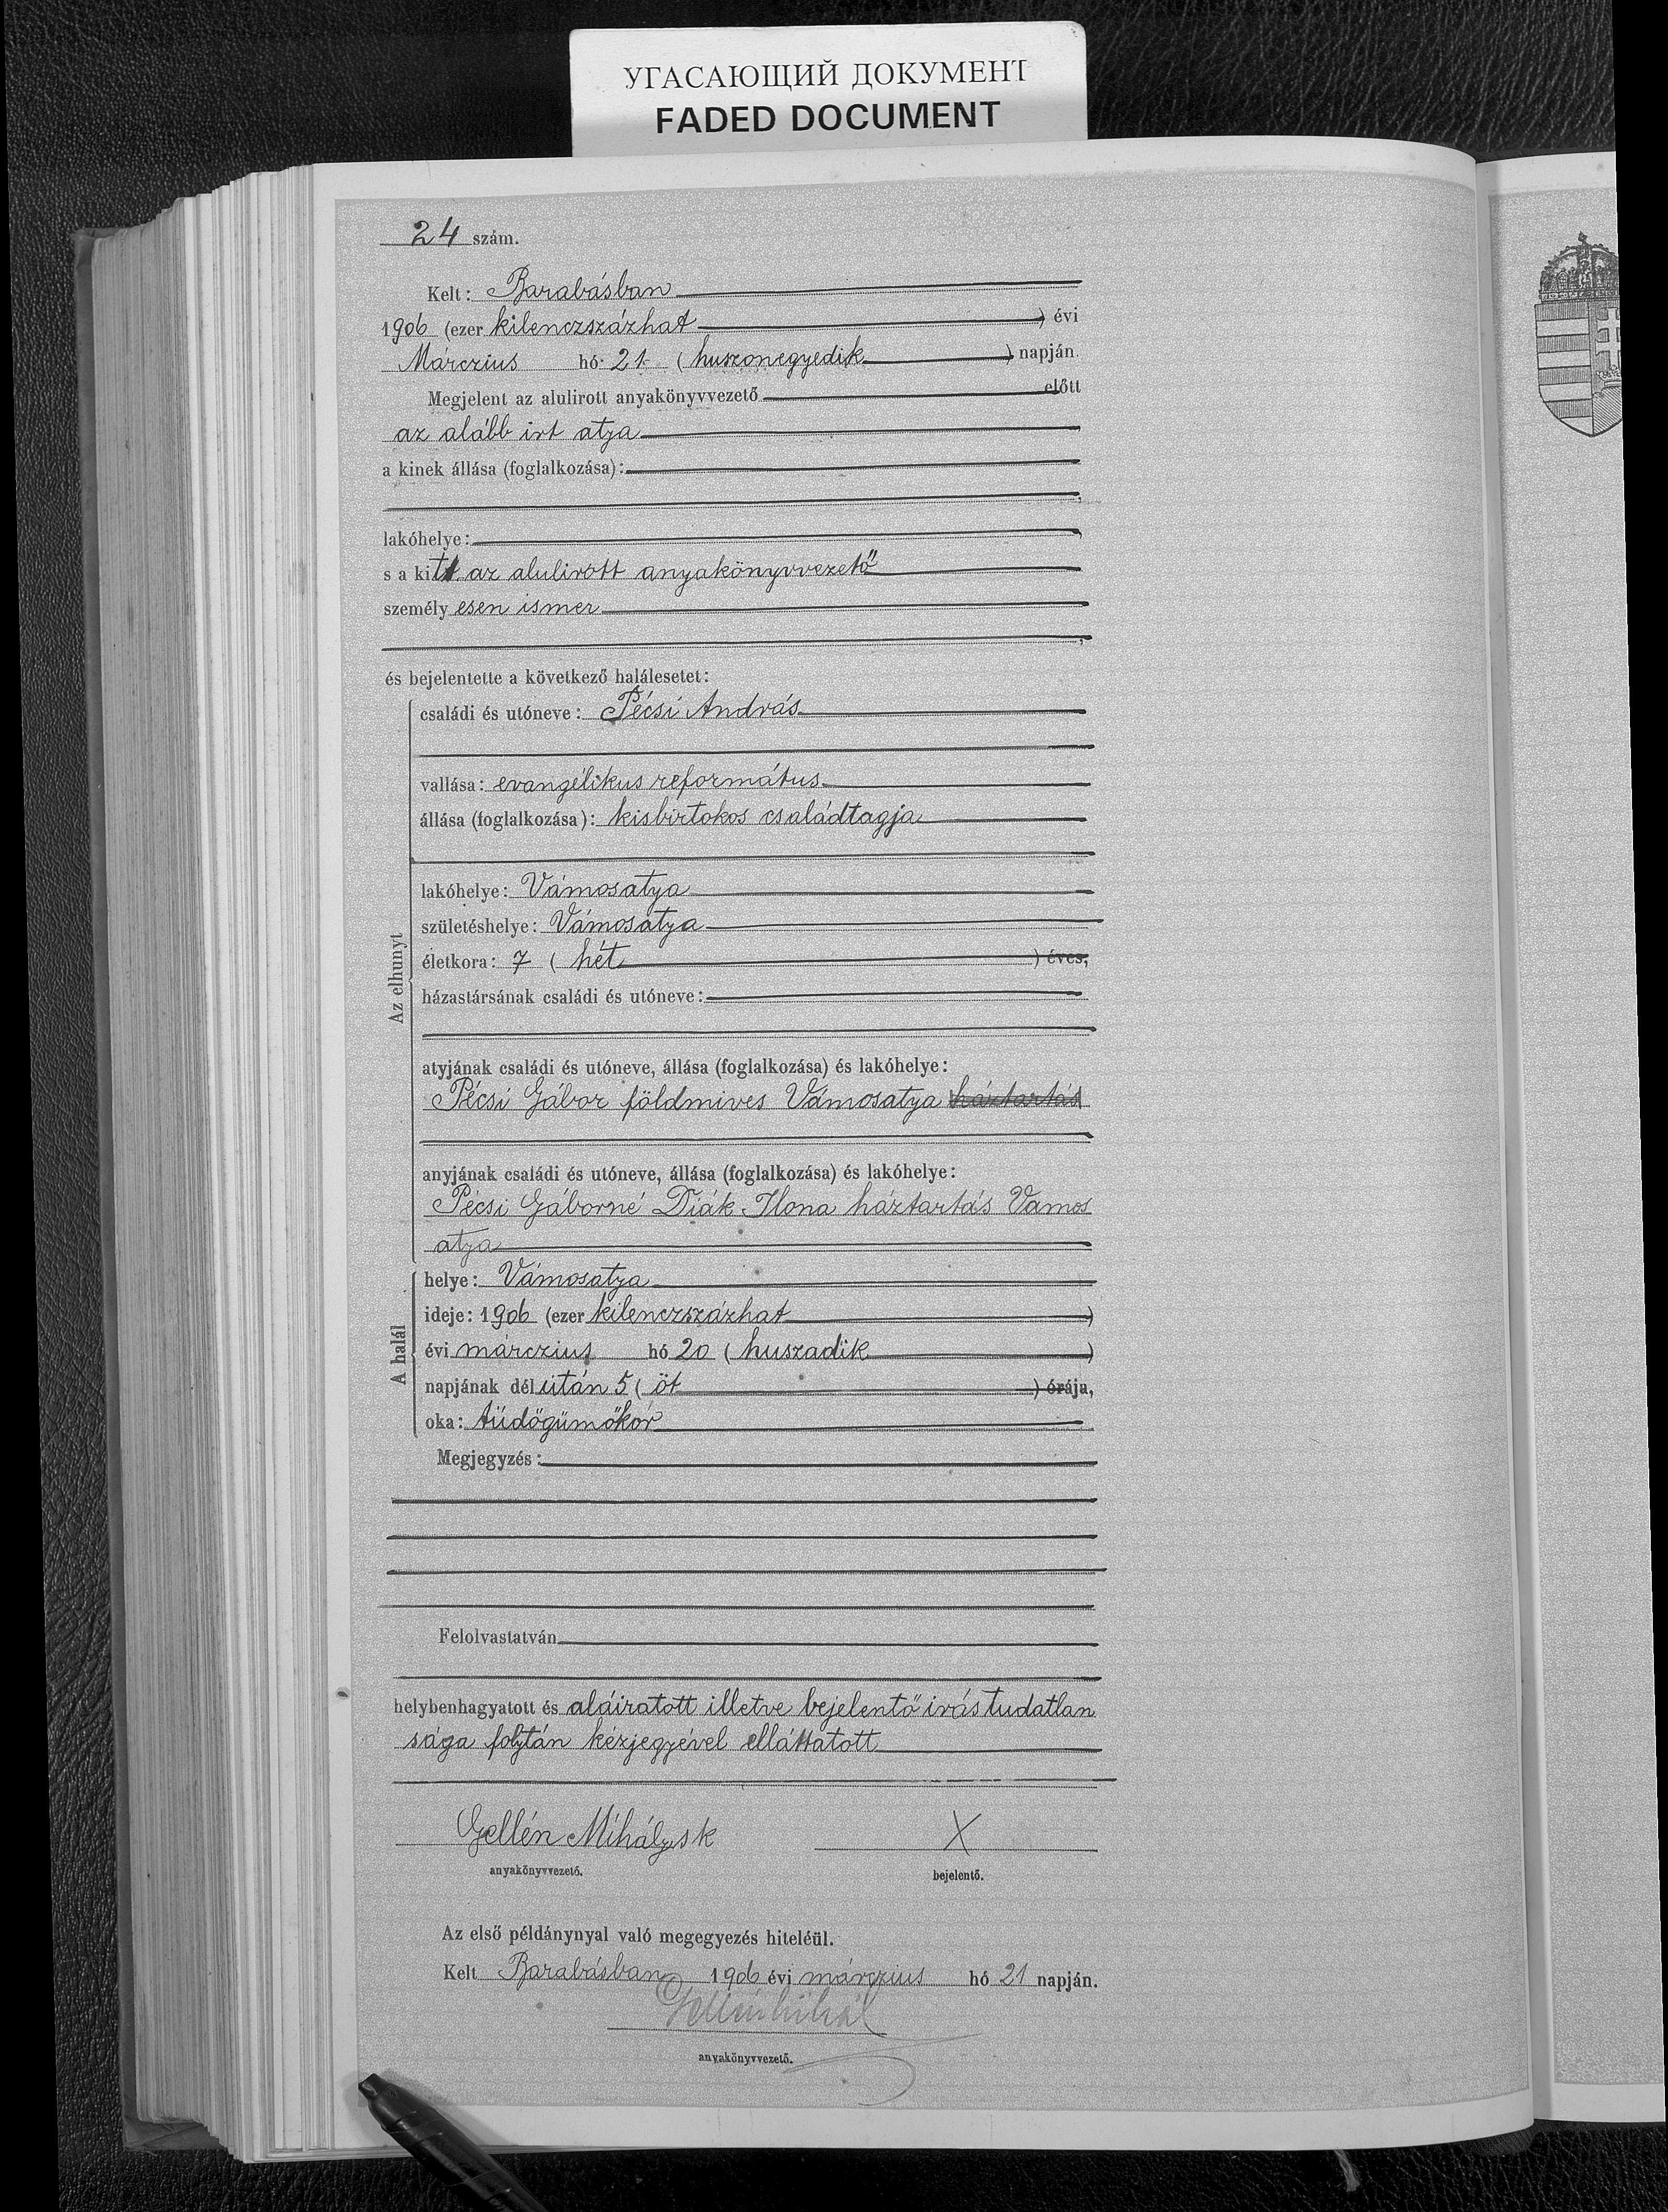 УГАСАЮЩИЙ ДОКУМЕНТ
FADED DOCUMENT
24 szám.
Kelt: Barabásban
1906 (ezer kilenczszázhat ) évi
Márczius hó 21 (huszonegyedik ) napján.
Megjelent az alulirott anyakönyvvezető előtt
az alább irt atja
a kinek állása (foglalkozása):
lakóhelye:
s a kit az alulirott anyakönyvvezető
személyesen ismer
és bejelentette a következő halálesetet:
Az elhunyt
családi és utóneve: Pécsi András
vallása: evangélikus református
állása (foglalkozása): kisbirtokos családtagja
lakóhelye: Vámosatya
születéshelye: Vámosatya
életkora: 7 (hét ) éves,
házastársának családi és utóneve:
atyjának családi és utóneve, állása (foglalkozása) és lakóhelye:
Pécsi Gábor földmives Vámosatya háztartás
anyjának családi és utóneve, állása (foglalkozása) és lakóhelye:
Pécsi Gáborné Diák Ilona háztartás Vamos
atja
A halál
helye: Vámosatya
ideje: 1906 (ezer kilenczszázhat )
évi márczius hó 20 (huszadik )
napjának délután 5 (öt ) órája,
oka: tüdőgümőkór
Megjegyzés:
Felolvastatván
helybenhagyatott és aláiratott illetve bejelentő irástudatlan
sága folytán kézjegyével elláttatott
Gellén Mihály sk X
anyakönyvvezető. bejelentő.
Az első példánynyal való megegyezés hiteléül.
Kelt Barabásban 1906 évi márczius hó 21 napján.
Gellén Mihál
anyakönyvvezető.